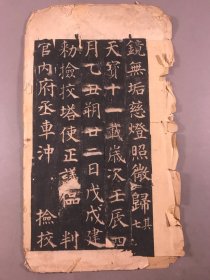 鏡無垢慈燈照微歸其七
天寶十一載歲次壬辰四
月乙丑朔廿二日戊戌建
勑撿挍塔使正議偘 判
官内府丞車沖 撿挍